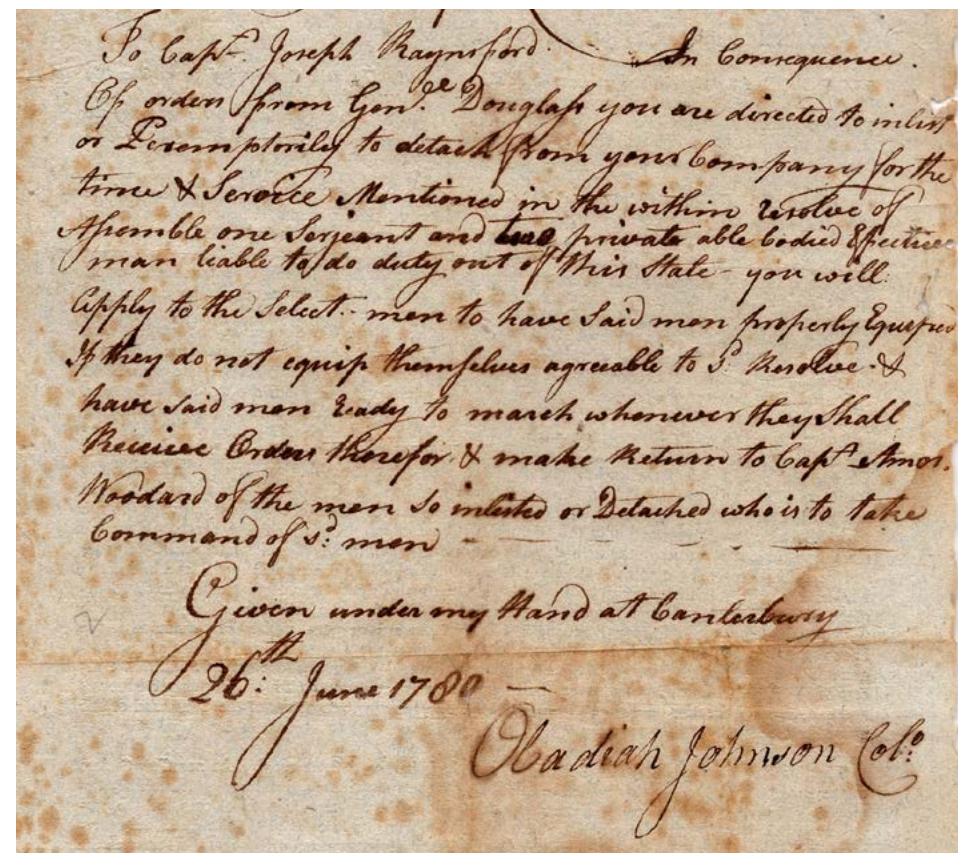 To Capt. Joseph Raynsford. In Consequence.
Of orders from Gen.le Douglass you are directed to inlist
or Peremptorily to detach from your Company for the
time & Service Mentioned in the within resolve of
Assemble one Serjeant and two private able bodied Efective
man liable to do duty out of this State - you will
Apply to the Select.- men to have said men properly Equiped
If they do not equip themselves agreeable to sd. Resolve. &
have said men ready to march whenever they Shall
Receive Orders therefor & make Return to Capt. Amos.
Woodard of the men so inlisted or Detached who is to take
Command of sd. men
Given under my Hand at Canterbury
26:th June 1780 —
Obadiah Johnson Colo.